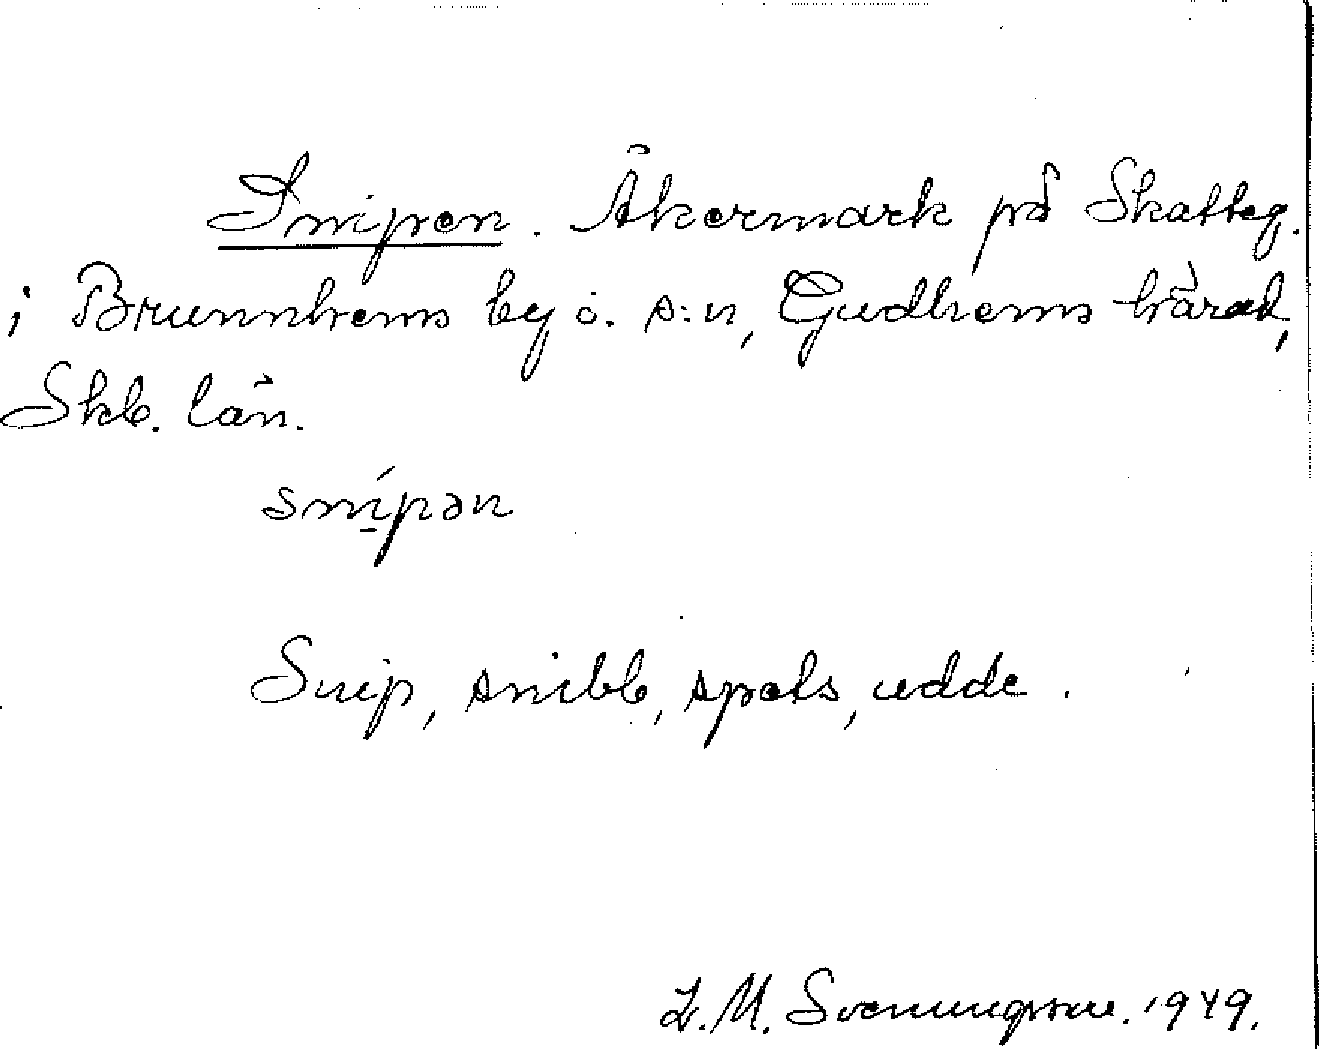 Snipen. Åkermark på Skatteg.
i Brunnhems by o. s:n, Gudhems härad,
Skb. län.
snípən
Snip, snibb, spets, udde.
L.M. Svenungsson. 1949.